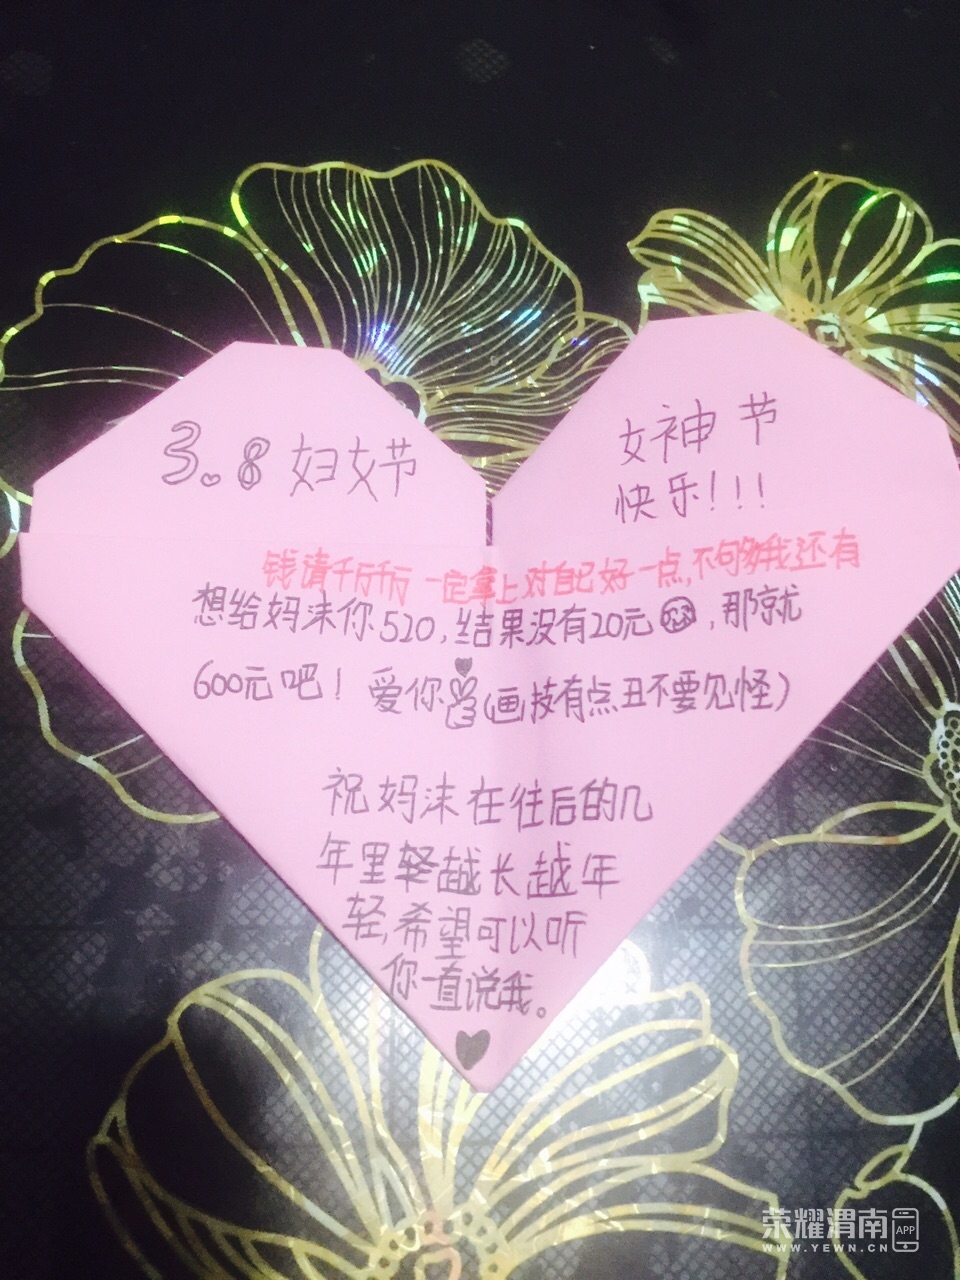 3.8 妇女节
女神 节
快乐!!!
钱请千万千万 一定拿上对自己好一点,不够我还有
想给妈沫你520,结果没有20元,那就
600元吧! 爱你(画技有点丑不要见怪)
祝妈沫在往后的几
年里轻越长越年
轻,希望可以听
你一直说我。
荣耀渭南 APP
WWW.YEWN.CN